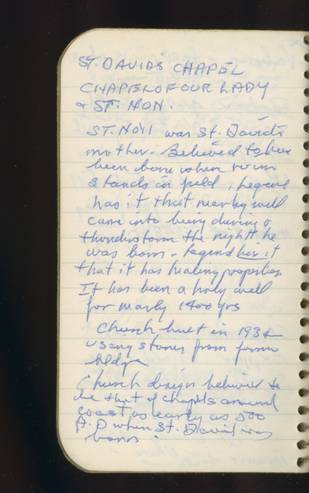 ST. DAVIDS CHAPEL
CHAPEL OF OUR LADY
& ST. NON.
ST. NON was St. David's
mother. Believed to have
been born where ruin
stands in field, legend
has it that nearby well
came into being during a
thunderstorm the night he
was born. Legend has it
that it has healing properties
It has been a holy well
for nearly 1400 yrs
Church built in 1934
using stones from farm
bldgs
Church design believed to
be that of chapels around
coast as early as 500
A.D when St. David was
born.